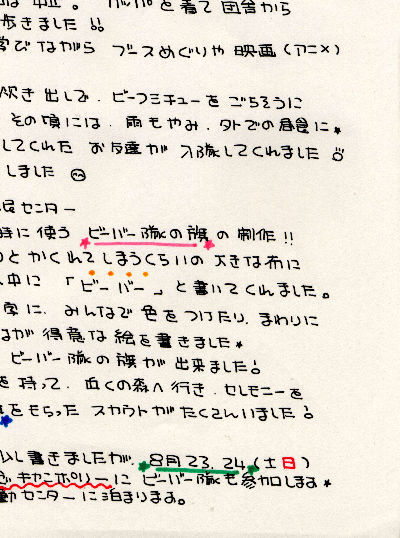 は 中止 。 カッパ を 着て 団舎から
歩きました !!
学び ながら ブースめぐりや 映画 (アニメ)
炊き出しで、ビーフシチューを ごちそうに
その頃には、雨もやみ、外での昼食に★
してくれた お友達が 入隊してくれました
しました
センター
時に使う ビーバー隊の旗 の制作 !!
とかくれてしまうくらいの 大きな布に
中に 「ビーバー」 と書いてくれました。
字に、みんなで 色をつけたり、まわりに
が 得意な絵を書きました★
ビーバー隊の 旗が 出来ました!
を持って、近くの森へ行き、セレモニーを
をもらった スカウトが たくさんいました!
少し書きましたが、★8月23、24★(土日)
キャンポリーに ビーバー隊も参加します★
動センターに泊まります。